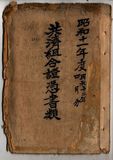 昭和十一年度
共済組合證憑書類